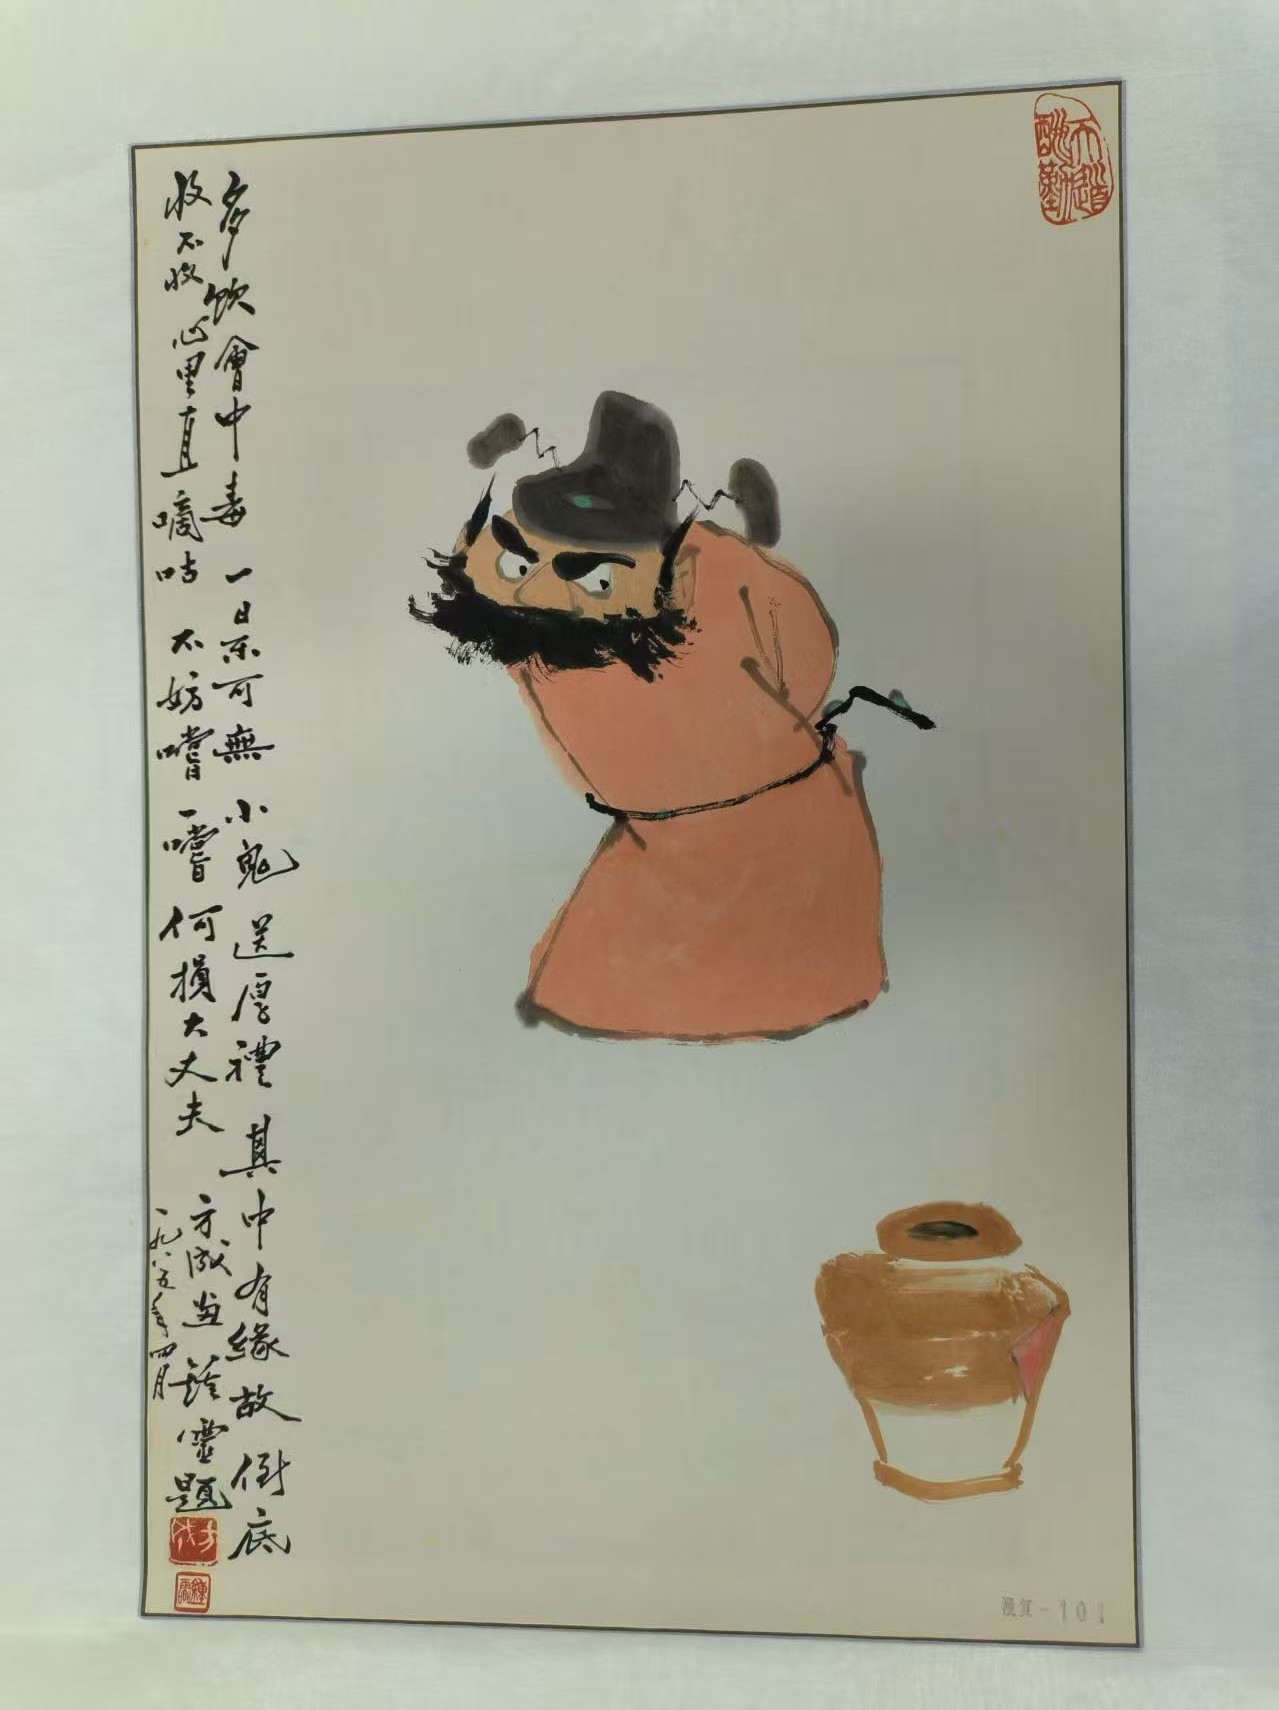 天道酬勤
多飲會中毒 一日不可無 小鬼送厚禮 其中有緣故 倒底
收不收 心里直嘀咕 不妨嚐一嚐 何損大丈夫
方成画 鍾靈題
一九八五年四月
方成
鍾靈
漫复-101